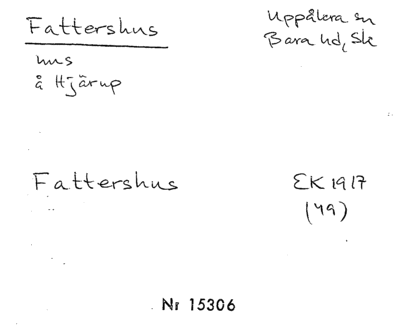 Fattershus
Uppåkra sn
Bara hd, Sk
hus
å Hjärup
Fattershus
EK 1917
(49)
Nr 15306